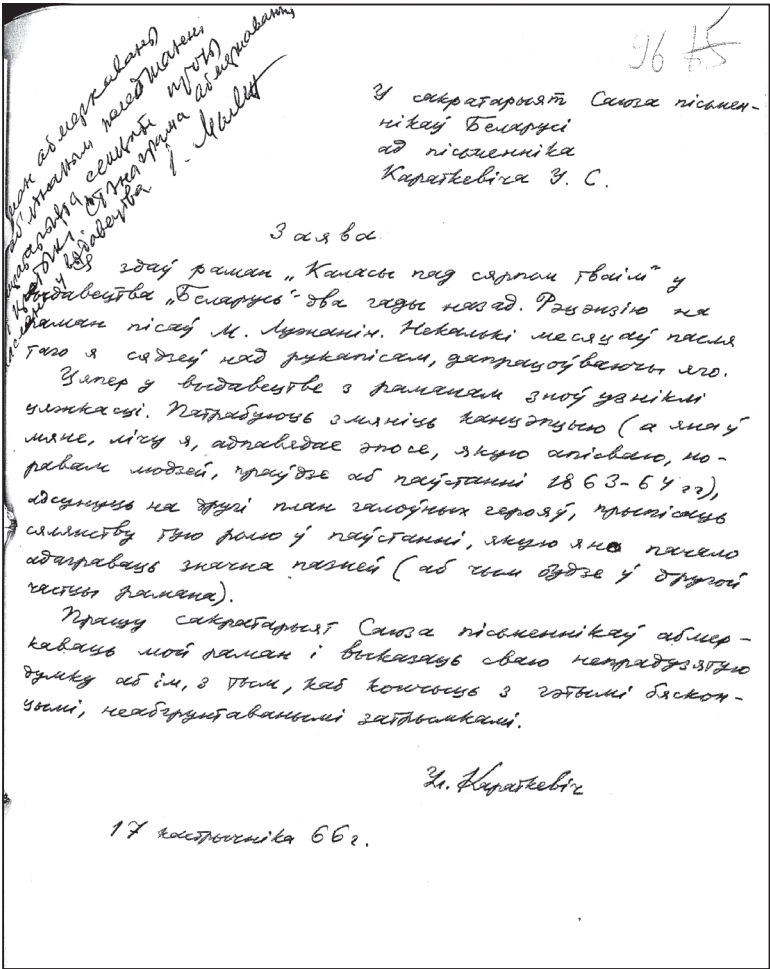 96 85
Раман абмеркаваны
на аб'яднаным пасяджэнні
сакратарыята секцыі прозы
і крытыкі. Стэнаграма абмеркавання
у выдавецтва І.
У сакратарыят Саюза пісьмен-
нікаў Беларусі
ад пісьменніка
Караткевіча У. С.
Заява
Я здаў раман „Каласы пад сярпом тваім“ у
выдавецтва „Беларусь“ два гады назад. Рэцэнзію на
раман пісаў М. Лужанін. Некалькі месяцаў пасля
таго я сядзеў над рукапісам, дапрацоўваючы яго.
Цяпер у выдавецтве з раманам зноў узніклі
цяжкасці. Патрабуюць змяніць канцэпцыю (а яна ў
мяне, лічу я, адпавядае эпосе, якую апісваю, но-
равам людзей, праўдзе аб паўстанні 1863-64 гг),
адсунуць на другі план галоўных герояў, прыпісаць
сялянству тую ролю ў паўстанні, якую яно пачало
адаграваць значна пазней (аб чым будзе ў другой
частцы рамана).
Прашу сакратарыят Саюза пісьменнікаў абмер-
каваць мой раман і выказаць сваю непрадузятую
думку аб ім, з тым, каб кончыць з гэтымі бяскон-
цымі, неабгрунтаванымі затрымкамі.
Ул. Караткевіч
17 кастрычніка 66 г.